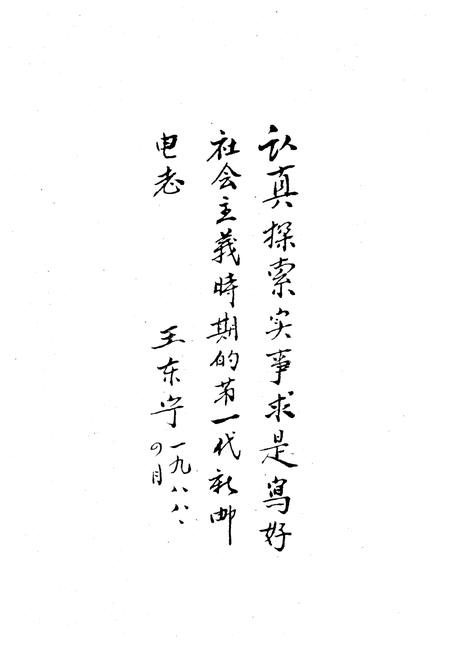 认真探索实事求是寫好
社会主義時期的第一代新邮
电志
王东宁
一九八八、
四月